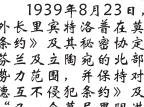 1939年8月23日，
外长里宾特洛普在莫
条约》及其秘密协定
芬兰及立陶宛的北部
势力范围，并保持对
德互不侵犯条约》及